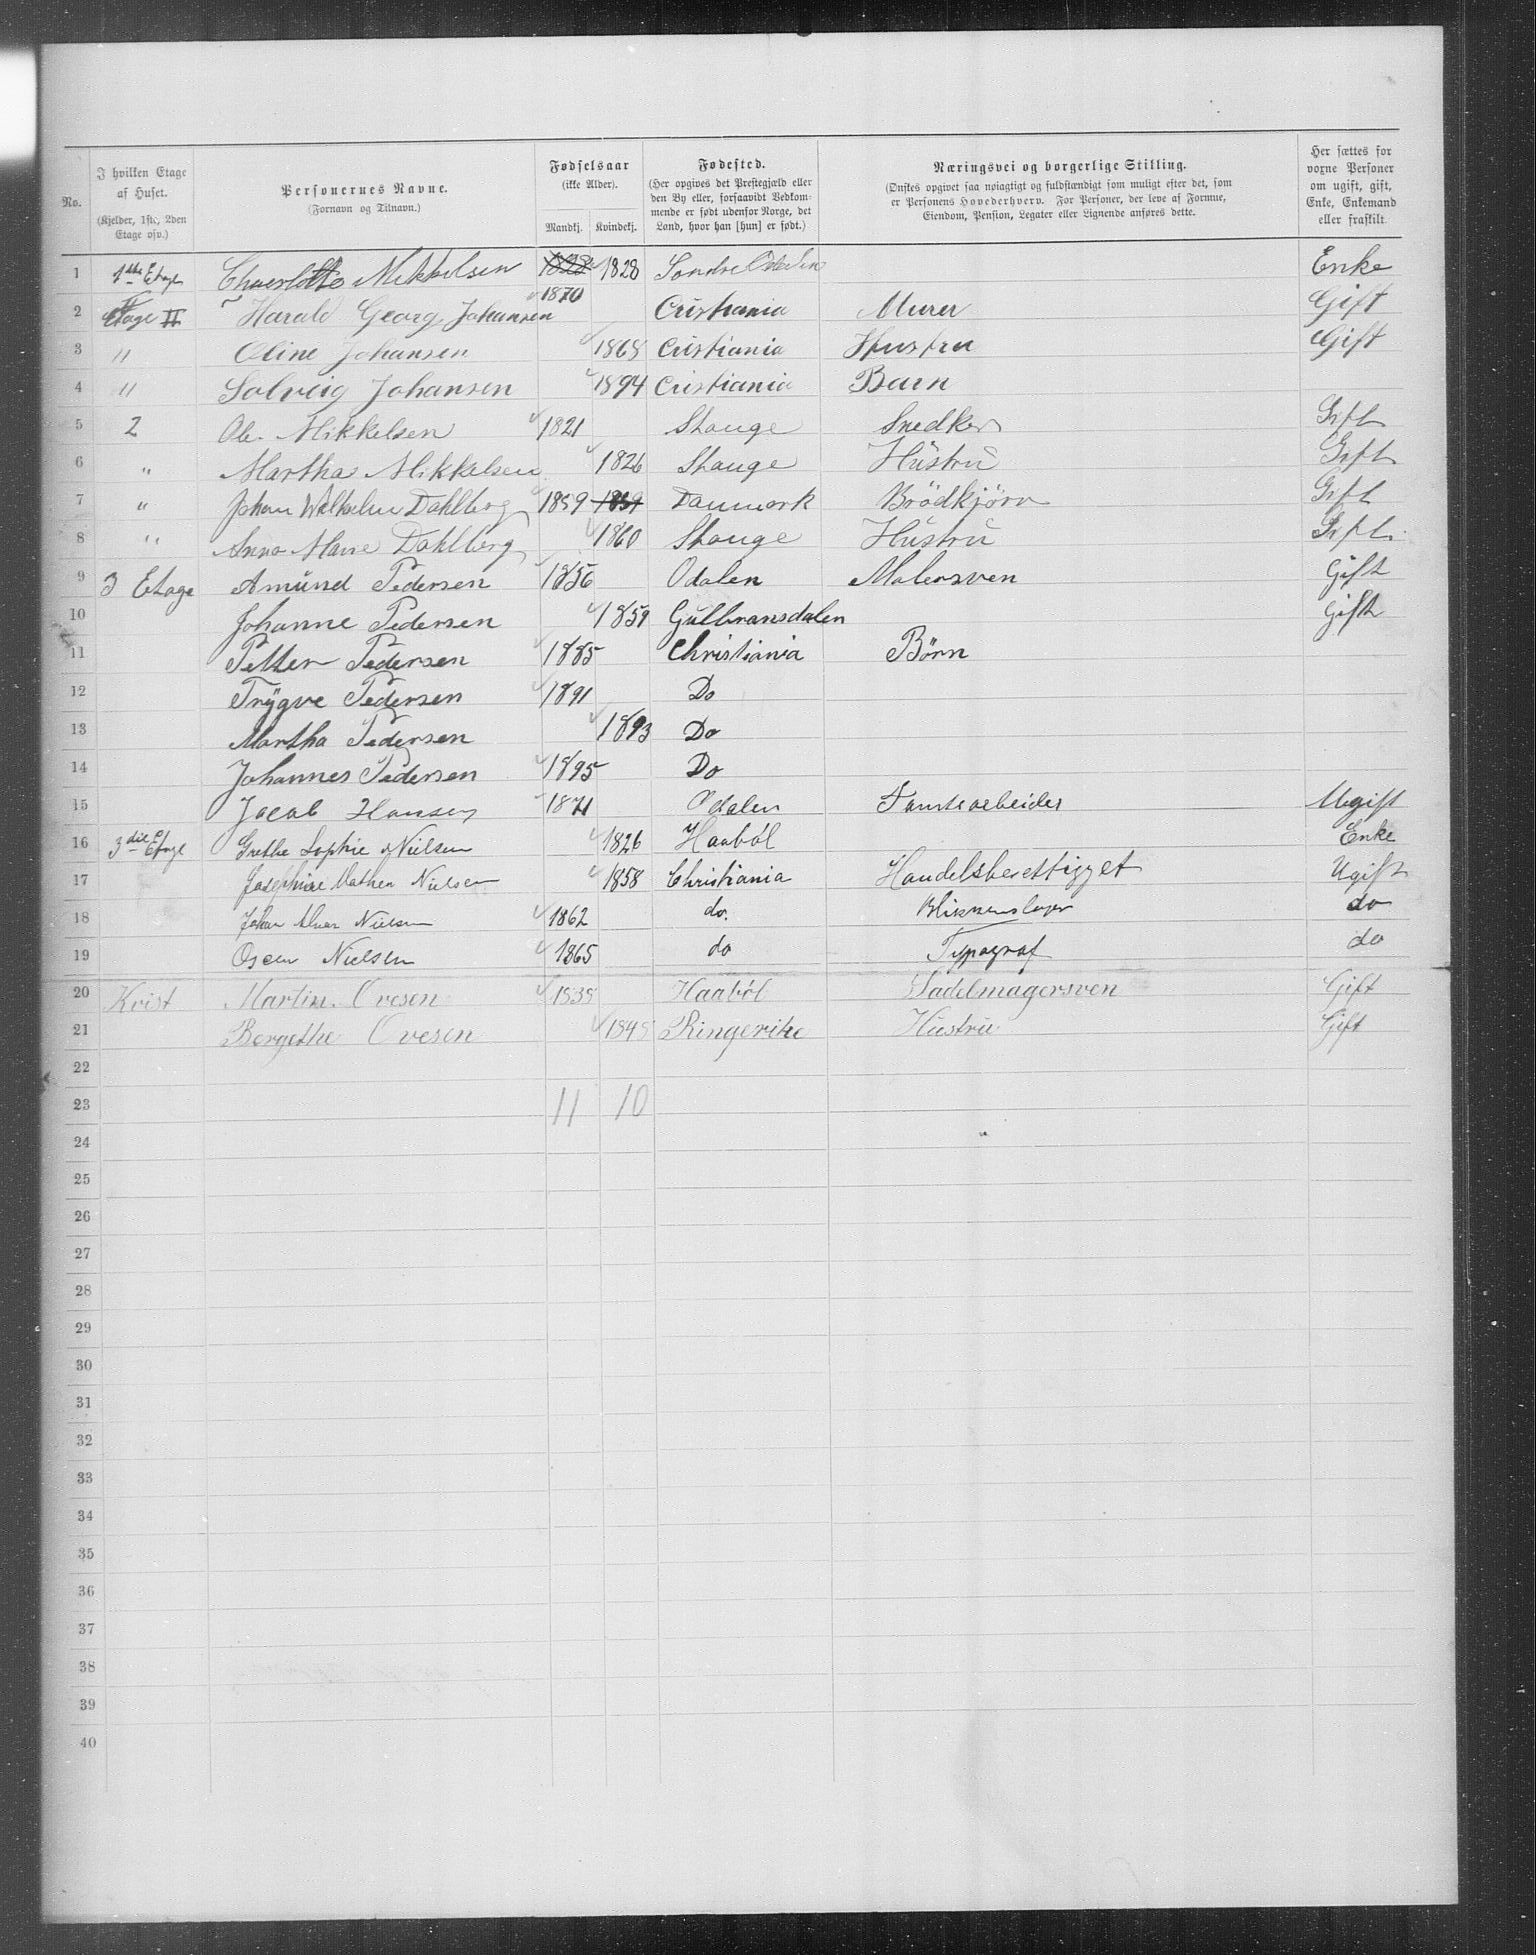 No.
I hvilken Etage af Huset. (Kjelder, 1ste, 2den Etage osv.)
Personernes Navne. (Fornavn og Tilnavn.)
Fødselsaar (ikke Alder). Mandkj. Kvindekj.
Fødested. (Her opgives det Prestegjæld eller den By eller, forsaavidt Vedkommende er født udenfor Norge, det Land, hvor han [hun] er født.)
Næringsvei og borgerlige Stilling. (Ønskes opgivet saa nøiagtigt og fuldstændigt som muligt efter det, som er Personens Hovederhverv. For Personer, der leve af Formue, Eiendom, Pension, Legater eller Lignende anføres dette.)
Her sættes for voxne Personer om ugift, gift, Enke, Enkemand eller fraskilt.
1 1ste Etage Charlotte Mikkelsen 1828 1828 Søndre Odalen Enke
2 Etage II Harald Georg Johansen 1870 Cristiania Murer Gift
3 " Oline Johansen 1868 Cristiania Hustru Gift
4 " Solveig Johansen 1894 Cristiania Barn
5 2 Ole Mikkelsen 1821 Stange Snedker Gift
6 " Martha Mikkelsen 1826 Stange Hústrú Gift
7 " Johan Wilhelm Dahlberg 1859 1859 Danmark Brödkjörer Gift
8 " Anna Marie Dahlberg 1860 Stange Hústrú Gift
9 3 Etage Amúnd Pedersen 1856 Odalen Malersven Gift
10 Johanne Pedersen 1859 Gúlbransdalen Gift
11 Petter Pedersen 1885 Christiania Børn
12 Trygve Pedersen 1891 Do
13 Martha Pedersen 1893 Do
14 Johannes Pedersen 1895 Do
15 Jacob Hansen 1871 Odalen Tomtearbeider Ugift
16 3die Etage Grethe Sophie Nielsen 1826 Haaböl Enke
17 Josephine Mathea Nielsen 1858 Christiania Handelsberettigget Ugift
18 Johan Alver Nielsen 1862 do. Blikkenslager do
19 Oscar Nielsen 1865 do Typograf do
20 Kvist Martin Ovesen 1835 Haaböl Sadelmagersven Gift
21 Bergethe Ovesen 1845 Ringerike Hústrú Gift
22
23 11 10
24
25
26
27
28
29
30
31
32
33
34
35
36
37
38
39
40